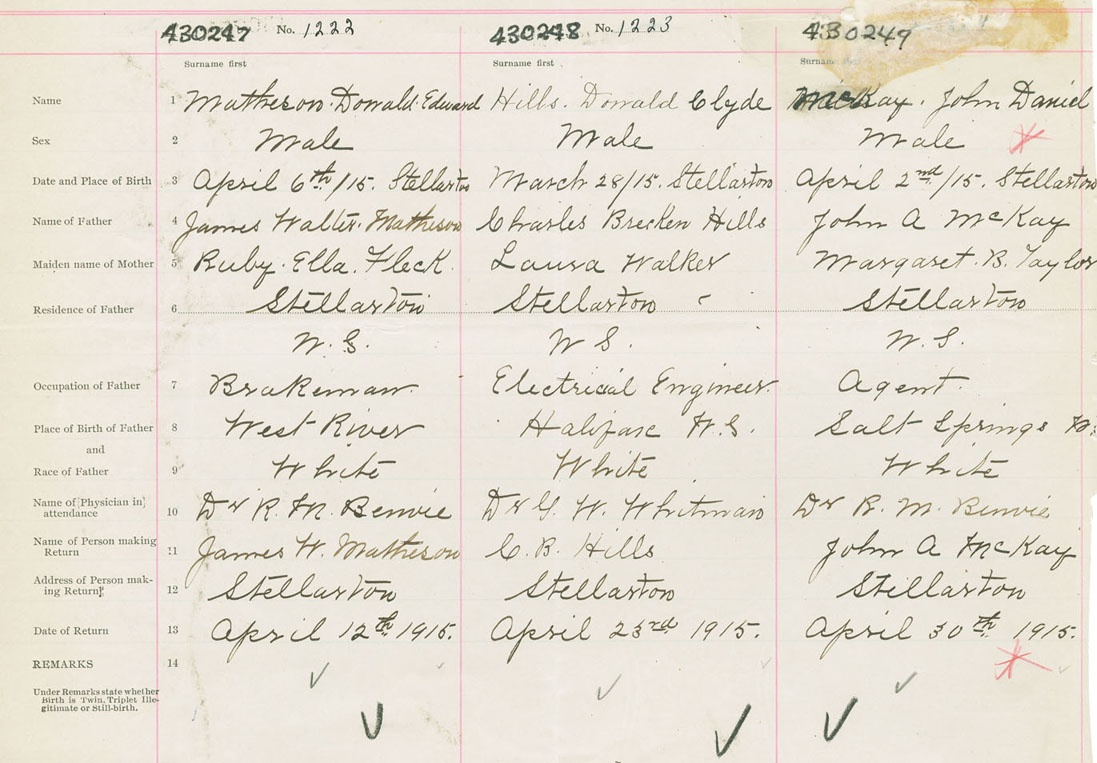 430247 No. 1222 430248 No. 1223 430249
Surname first Surname first Surname first
Name 1 Matheson. Donald. Edward Hills. Donald Clyde McKay. John Daniel
Sex 2 Male Male Male
Date and Place of Birth 3 April 6th/15. Stellarton March 28/15. Stellarton April 2nd/15. Stellarton
Name of Father 4 James Walter. Matheson Charles Brecken Hills John A McKay
Maiden name of Mother 5 Ruby. Ella. Fleck. Laura Walker Margaret. B. Taylor
Residence of Father 6 Stellarton Stellarton Stellarton
N. S. N S. N. S.
Occupation of Father 7 Brakeman Electrical Engineer. Agent.
Place of Birth of Father 8 West River Halifax N. S. Salt Springs
and
Race of Father 9 White White White
Name of [Physician in] 10 Dr R. M. Benvie Dr G. W. Whitman Dr R. M. Benvie
attendance
Name of Person making 11 James W. Matheson C. B. Hills John A McKay
Return
Address of Person mak- 12 Stellarton Stellarton Stellarton
ing Return
Date of Return 13 April 12th 1915. April 23rd 1915. April 30th 1915.
REMARKS 14
Under Remarks state whether
Birth is Twin, Triplet Ille-
gitimate or Still-birth.